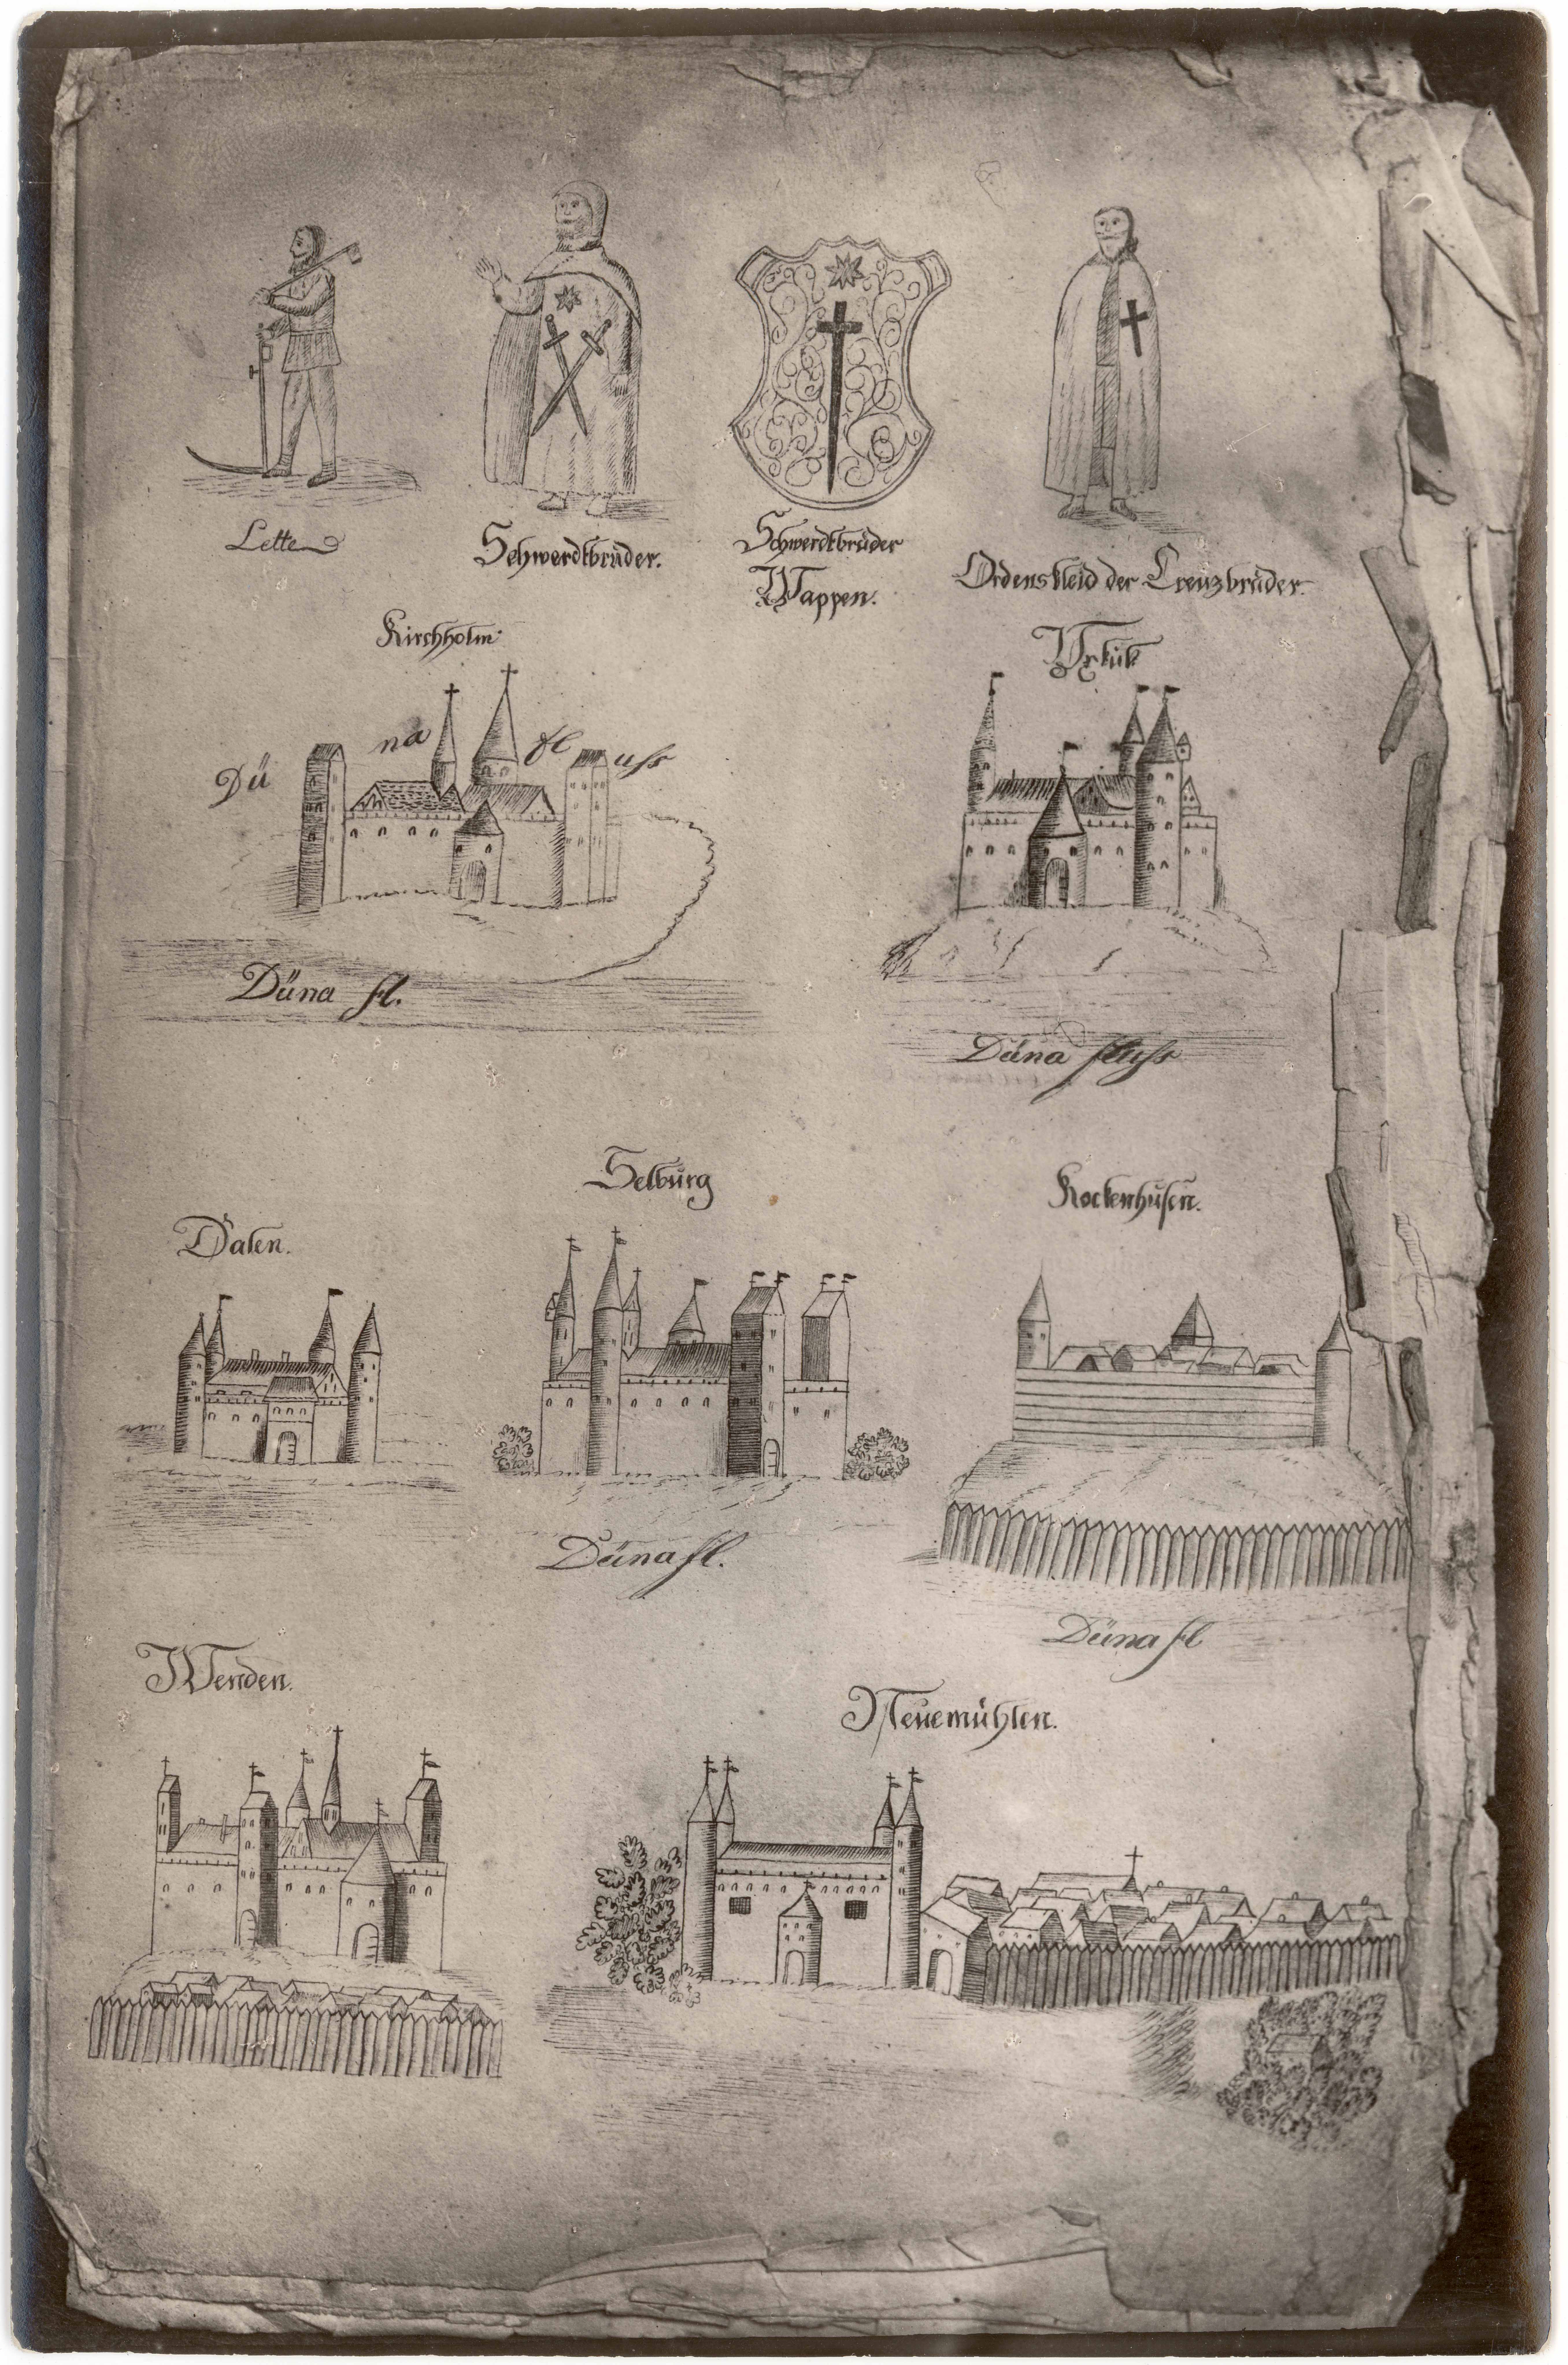 Lette
Schwerdtbrüder.
Schwerdtbrüder
Wappen.
Ordenskleid der Creuzbrüder.
Kirchholm
Ixkül
Dü na fl uss
Düna fl.
Düna fluss
Selburg
Kockenhusen.
Dalen.
Düna fl.
Düna fl
Wenden.
Neuemühlen.